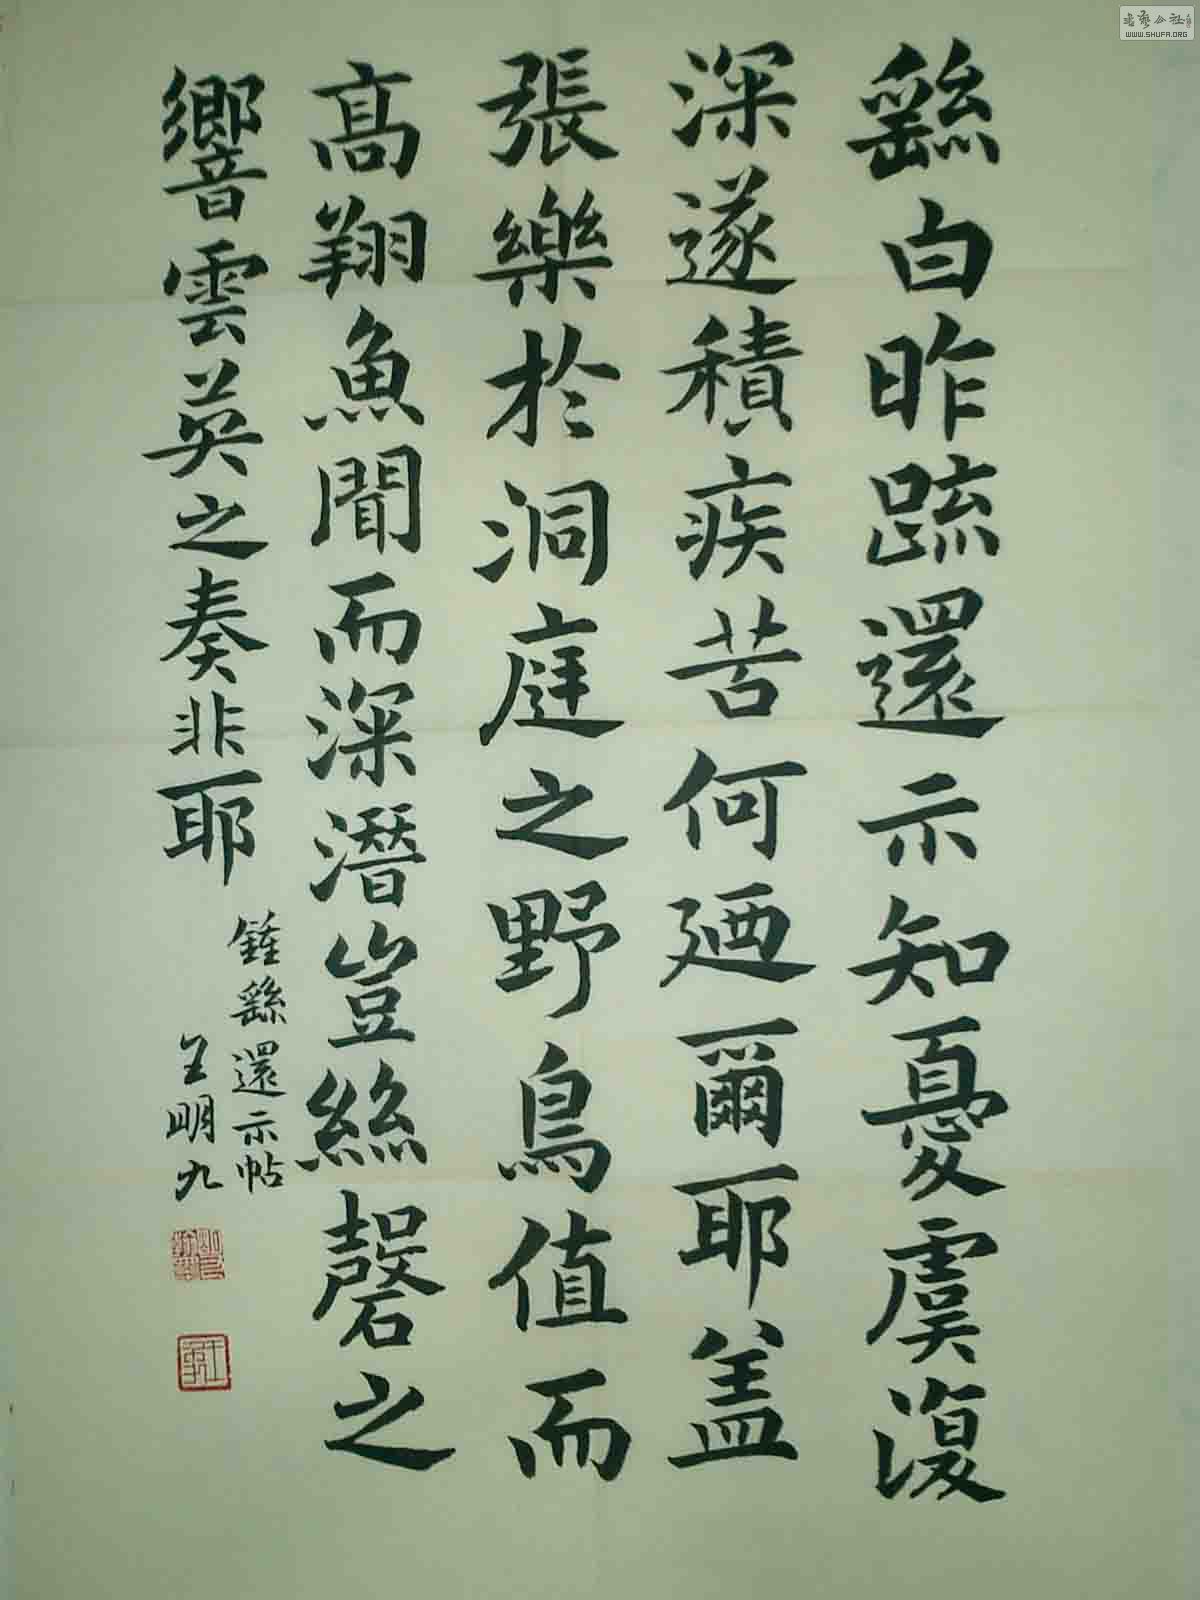 繇白昨疏還示知憂虞復
深遂積疾苦何廼爾耶盖
張樂於洞庭之野鳥值而
高翔魚聞而深潛豈絲磬之
響雲英之奏非耶
鍾繇還示帖
王明九
WWW.SHUFA.ORG